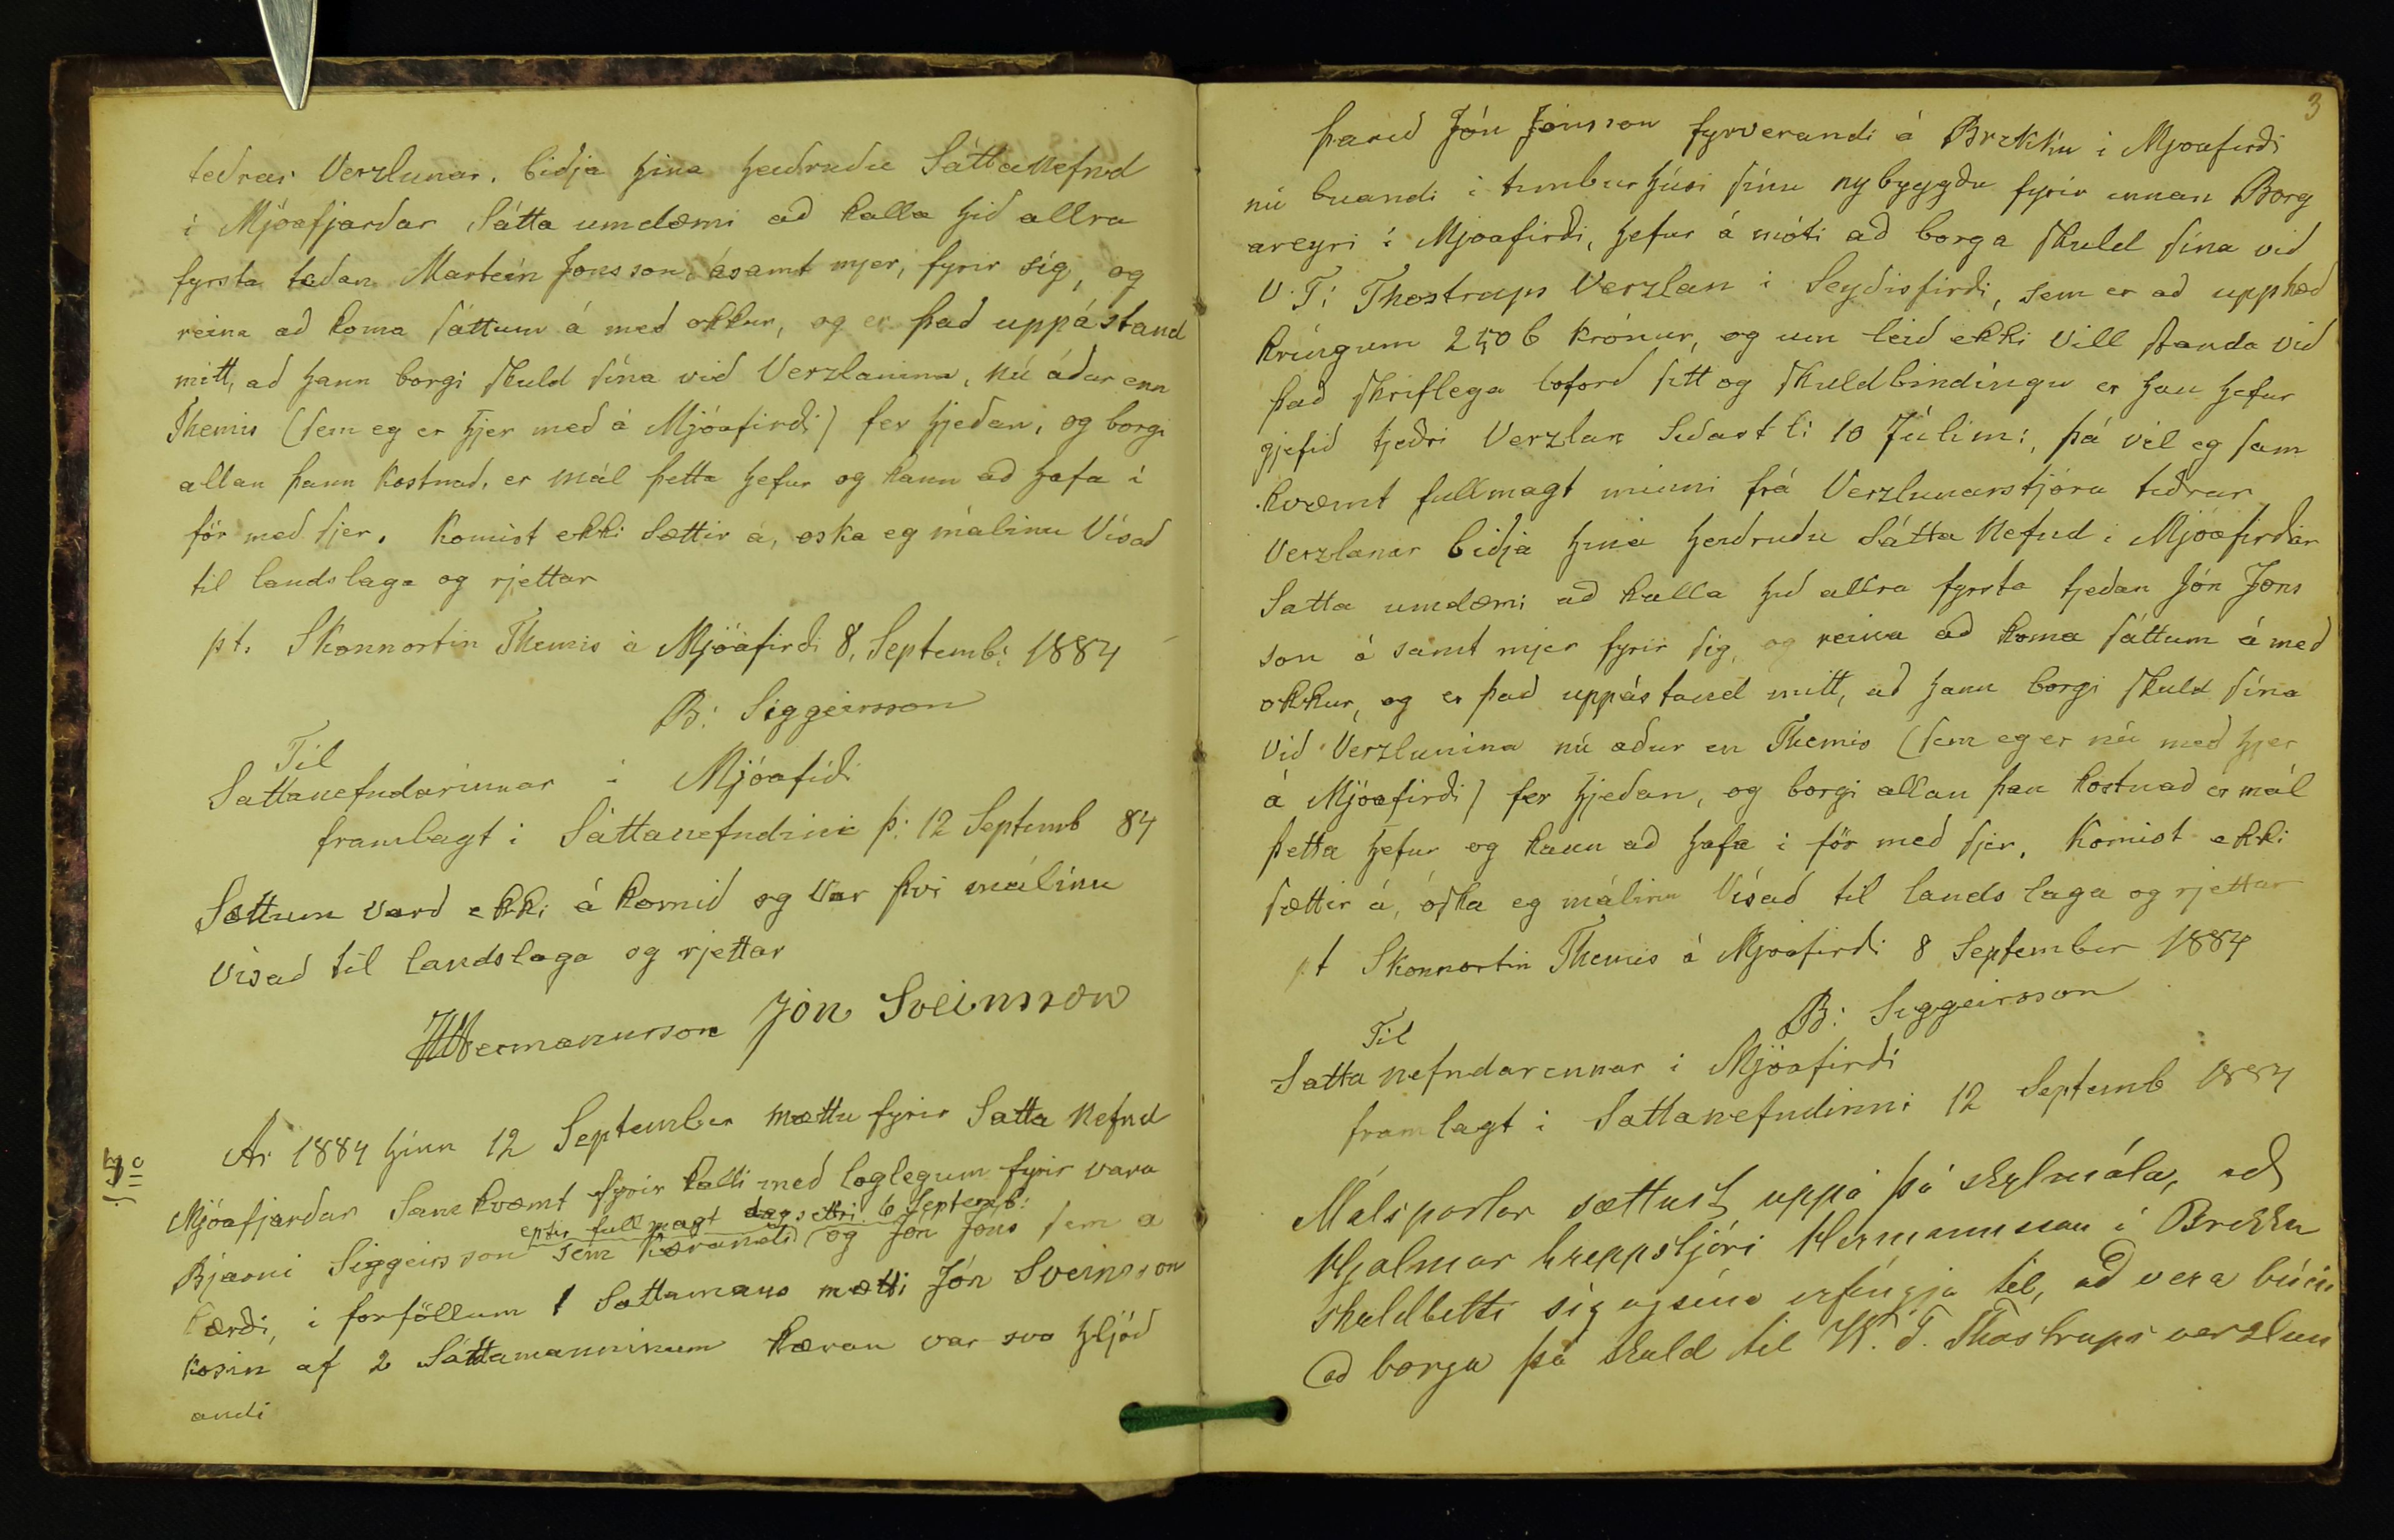 teðrar Verzlunar, biðja hina heiðruðu SáttaNefnd
i Mjóafjarðar Sátta umdæmi að kalla hið allra
fyrsta teðan Martein Jonsson, ásamt mjer, fyrir sig, og
reina að koma sáttum á með okkur, og er það uppástand
mitt, að hann borgi skuld sína við Verzlanina, nú áður enn
Themis (sem eg er hjer með á Mjóafirði) fer hjeðan, og borgi
allan þann Kostnað, er mál þetta hefur og kann að hafa í
för með sjer. Komist ekki Sættir á, oska eg málinu Vísað
til landslaga og rjettar
pt. Skonnortin Themis á Mjóafirði 8, Septemb: 1884
B: Siggeirsson
Til
Sattanefndarinnar i Mjóafiði
framlagt i Sáttanefndinni þ: 12 Septemb 84
Sættum varð ekki á komið og Var því málinu
Visað til landslaga og rjettar
HHermannsson Jón Sveinsson
No 3
Ár 1884 hinn 12 September mættu fyrir Satta Nefnd
Mjóafjarðar Samkvæmt fyrir kalli með loglegum fyrir vara
eptir fullmagt dagsettri 6 Septemb:
Bjarni Siggeirsson sem Kærandi og Jón Jóns sem a
kærði, i forföllum 1 Sattamans mætti Jón Sveinsson
kosin af 2 Sáttamanninum kæran var svo hljóð
andi
3
Þarið Jón Jónsson fyrverandi á Brekku i Mjoafirði
nú buandi i timburhúsi sínu nybyggðu fyrir innan Borg
areyri i Mjoafirði, hefur á móti að borga skuld sína við
V. T: Thostrups Verzlan i Seyðisfirði, sem er að upphæð
kringum 2506 krónur, og um leið ekki Vill standa við
það skriflega loforð sitt og skuldbindingu er han hefur
gjefið tjeðri Verzlan Siðast li: 10 Júlim:, þá vil eg sam
kvæmt fullmagt minni frá Verzlunarstjóra teðrar
Verzlanar biðja hina heiðruðu Sátta Nefnd i Mjóafirðar
Satta umdæmi að kalla hið allra fyrsta tjeðan Jón Jons
son á samt mjer fyrir sig, og reina að koma sáttum á með
okkur, og er það uppástand mitt, að hann borgi skuld sína
Við Verzlunina nú aður en Themis (sem eg er nú með hjer
á Mjóafirði) fer hjeðan, og borgi allan þan kostnað er mál
þetta hefur og kann að hafa i för með sjer. Komist ekki
sættir á, óska eg málinu Vísað til lands laga og rjettar
pt Skonnortin Themis á Mjoafirði 8 September 1884
B: Siggeirsson
Til
Satta nefndarennar i Mjóafirði
framlagt i Sattanefndinni 12 Septemb 1884
Málspartar sættust uppá þá skylmála, að
Hjalmar hreppstjóri Hermannsson á Brekku
skuldbatt sig og sína erfingja til, að vera búin
að borga þá skuld til V. T. Thostrups verzlun